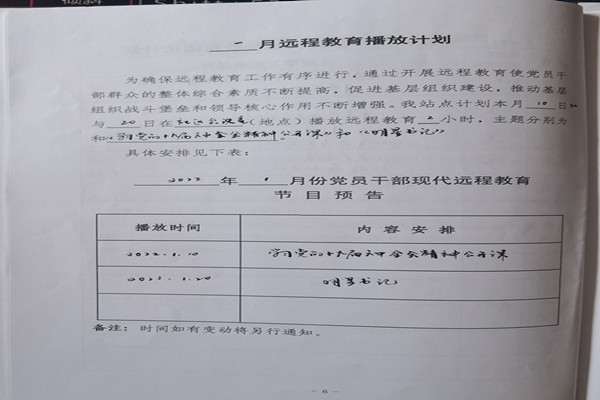 一月远程教育播放计划
为确保远程教育工作有序进行,通过开展远程教育使党员干
部群众的整体综合素质不断提高,促进基层组织建设,推动基层
组织战斗堡垒和领导核心作用不断增强。我站点计划本月10日
与20日在会议室(地点)播放远程教育2小时,主题分别为
《学习党的十九届六中全会精神公开课》和《明星书记》
具体安排见下表:
2022年1月份党员干部现代远程教育
节目预告
播放时间 内容安排
2022.1.10 学习党的十九届六中全会精神公开课
2022.1.20 明星书记
备注:时间如有变动将另行通知。
- 6 -